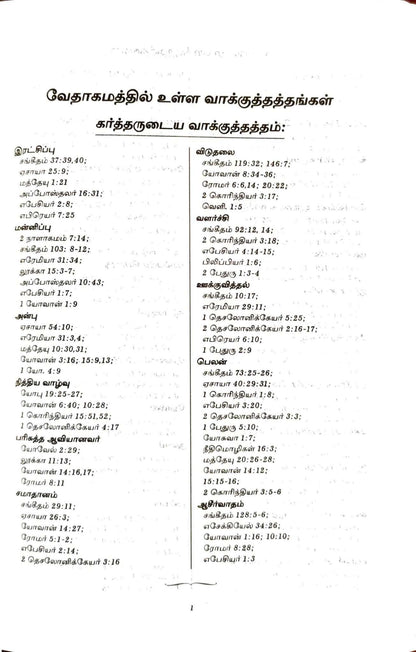 வேதாகமத்தில் உள்ள வாக்குத்தத்தங்கள்
கர்த்தருடைய வாக்குத்தத்தம்:
இரட்சிப்பு
சங்கீதம் 37:39,40;
ஏசாயா 25:9;
மத்தேயு 1:21
அப்போஸ்தலர் 16:31;
எபேசியர் 2:8;
எபிரெயர் 7:25
மன்னிப்பு
2 நாளாகமம் 7:14;
சங்கீதம் 103: 8-12;
எரேமியா 31:34;
லூக்கா 15:3-7;
அப்போஸ்தலர் 10:43;
எபேசியர் 1:7;
1 யோவான் 1:9
அன்பு
ஏசாயா 54:10;
எரேமியா 31:3,4;
மத்தேயு 10:30,31;
யோவான் 3:16; 15:9,13;
1 யோ. 4:9
நித்திய வாழ்வு
யோபு 19:25-27;
யோவான் 6:40; 10:28;
1 கொரிந்தியர் 15:51,52;
1 தெசலோனிக்கேயர் 4:17
பரிசுத்த ஆவியானவர்
யோவேல் 2:29;
லூக்கா 11:13;
யோவான் 14:16,17;
ரோமர் 8:11
சமாதானம்
சங்கீதம் 29:11;
ஏசாயா 26:3;
யோவான் 14:27;
ரோமர் 5:1-2;
எபேசியர் 2:14;
2 தெசலோனிக்கேயர் 3:16
விடுதலை
சங்கீதம் 119:32; 146:7;
யோவான் 8:34-36;
ரோமர் 6:6,14; 20:22;
2 கொரிந்தியர் 3:17;
வெளி. 1:5
வளர்ச்சி
சங்கீதம் 92:12, 14;
2 கொரிந்தியர் 3:18;
எபேசியர் 4:14-15;
பிலிப்பியர் 1:6;
2 பேதுரு 1:3-4
ஊக்குவித்தல்
சங்கீதம் 10:17;
எரேமியா 29:11;
1 தெசலோனிக்கேயர் 5:25;
2 தெசலோனிக்கேயர் 2:16-17;
எபிரெயர் 6:10;
1 பேதுரு 2:9
பெலன்
சங்கீதம் 73:25-26;
ஏசாயா 40:29:31;
1 கொரிந்தியர் 1:8;
எபேசியர் 3:20;
2 தெசலோனிக்கேயர் 3:3;
1 பேதுரு 5:10;
யோசுவா 1:7;
நீதிமொழிகள் 16:3;
மத்தேயு 20:26-28;
யோவான் 14:12;
15:15-16;
2 கொரிந்தியர் 3:5-6
ஆசீர்வாதம்
சங்கீதம் 128:5-6;
எசேக்கியேல் 34:26;
யோவான் 1:16; 10:10;
ரோமர் 8:28;
எபேசியுர் 1:3
1